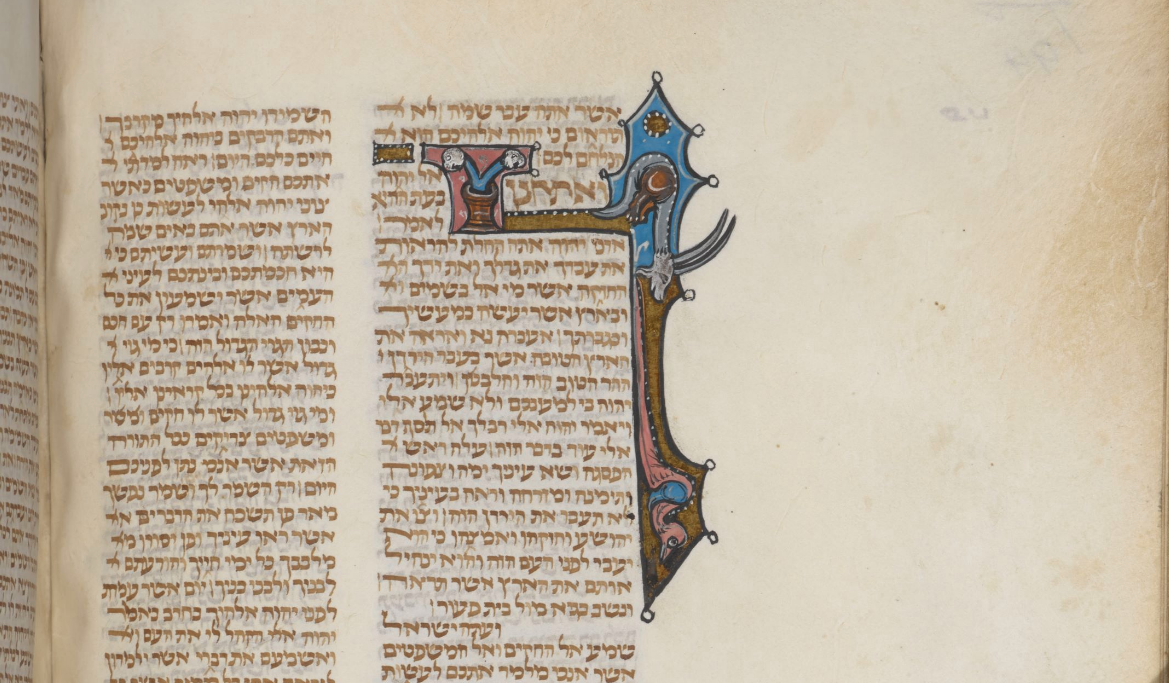 אשר אתה עבר שמה לא ת
תיראום כי יהוה אלהיכם הוא ה
הנלחם לכם
ואתחנן אל יהוה
בעת ההוא
לאמר
אדני יהוה אתה החלות להראות
את עבדך את גדלך ואת ידך הח
החזקה אשר מי אל בשמים וב
ובארץ אשר יעשה כמעשיך
וכגבורתך אעברה נא ואראה את
הארץ הטובה אשר בעבר הירדן ה
ההר הטוב הזה והלבנן ויתעבר
יהוה בי למענכם ולא שמע אלי
ויאמר יהוה אלי רב לך אל תסף דבר
אלי עוד בדבר הזה עלה ראש ה
הפסגה ושא עיניך ימה וצפונה
ותימנה ומזרחה וראה בעיניך כי
לא תעבר את הירדן הזה וצו את
יהושע וחזקהו ואמצהו כי הוא
יעבר לפני העם הזה והוא ינחיל
אותם את הארץ אשר תראה
ונשב בגיא מול בית פעור
ועתה ישראל
שמע אל החקים ואל המשפטים
אשר אנכי מלמד אתכם לעשות
השמידו יהוה אלהיך מקרבך
ואתם הדבקים ביהוה אלהיכם
חיים כלכם היום ראה למדתי
אתכם חקים ומשפטים כאשר
צוני יהוה אלהי לעשות כן בקרב
הארץ אשר אתם באים שמה
לרשתה ושמרתם ועשיתם כי ה
היא חכמתכם ובינתכם לעיני ה
העמים אשר ישמעון את כל
החקים האלה ואמרו רק עם חכם
ונבון הגוי הגדול הזה כי מי גוי ג
גדול אשר לו אלהים קרבים אליו
כיהוה אלהינו בכל קראינו אליו
ומי גוי גדול אשר לו חקים ומשפ
ומשפטים צדיקים ככל התורה
הזאת אשר אנכי נתן לפניכם
היום רק השמר לך ושמר נפשך
מאד פן תשכח את הדברים א
אשר ראו עיניך ופן יסורו מל
מלבבך כל ימי חייך והודעתם ל
לבניך ולבני בניך יום אשר עמדת
לפני יהוה אלהיך בחרב באמר
יהוה אלי הקהל לי את העם וא
ואשמעם את דברי אשר ילמדון